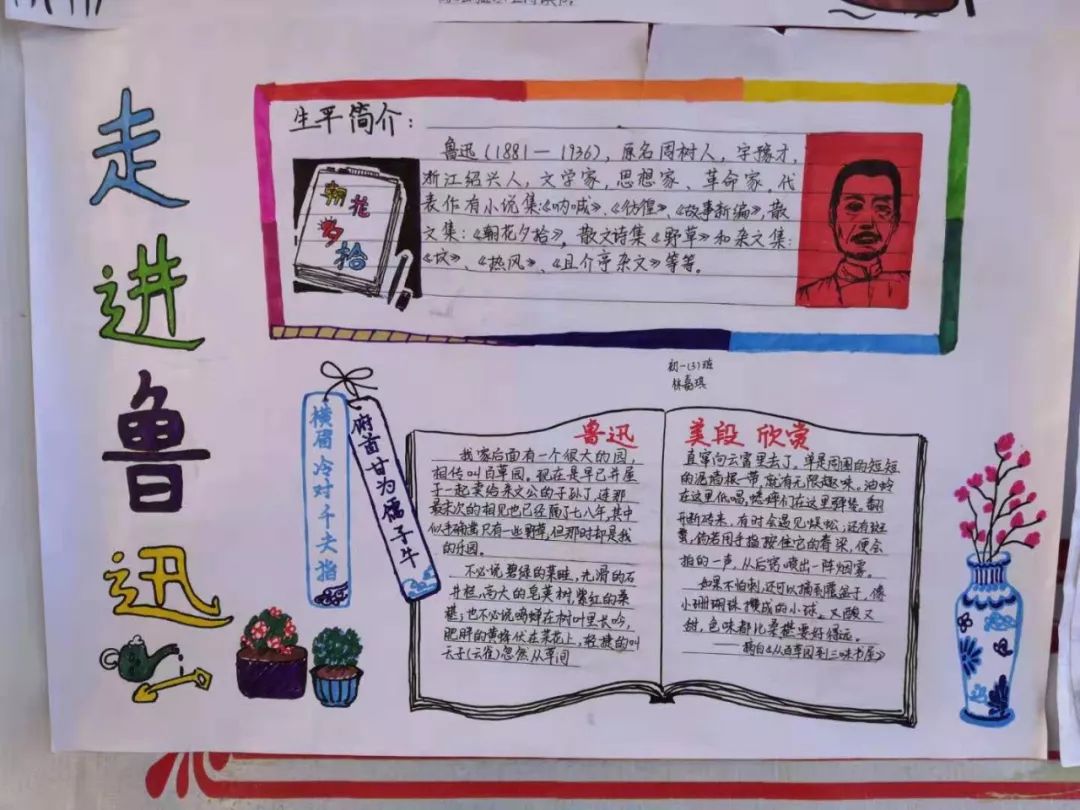 走进鲁迅
生平简介:
鲁迅(1881—1936),原名周树人,字豫才,
浙江绍兴人,文学家,思想家、革命家,代
表作有小说集:《呐喊》、《彷徨》、《故事新编》,散
文集:《朝花夕拾》,散文诗集《野草》和杂文集:
《坟》、《热风》、《且介亭杂文》等等。
朝花
夕
拾
初一(3)班
林嘉琪
横眉冷对千夫指
俯首甘为孺子牛
鲁迅
我家后面有一个很大的园,
相传叫百草园。现在是早已并屋
子一起卖给朱文公的子孙了,连那
最末次的相见也已经隔了七八年,其中
似乎确凿只有一些野草,但那时却是我
的乐园。
不必说碧绿的菜畦,光滑的石
井栏,高大的皂荚树,紫红的桑
葚;也不必说鸣蝉在树叶里长吟,
肥胖的黄蜂伏在菜花上,轻捷的叫
天子(云雀)忽然从草间
美段 欣赏
直窜向云霄里去了。单是周围的短短
的泥墙根一带,就有无限趣味。油蛉
在这里低唱,蟋蟀们在这里弹琴。翻
开断砖来,有时会遇见蜈蚣;还有斑
蝥,倘若用手指按住它的脊梁,便会
拍的一声,从后窍喷出一阵烟雾。
如果不怕刺,还可以摘到覆盆子,像
小珊瑚珠攒成的小球,又酸又
甜,色味都比桑葚要好得远。
——摘自《从百草园到三味书屋》